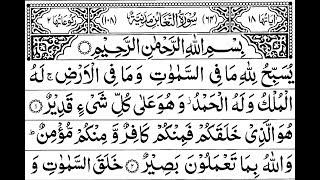 اٰیَاتُهَا ١٨ (٦٤) سُوْرَةُ التَّغَابُنِ مَدَنِيَّةٌ (١٠٨) رُكُوْعَاتُهَا ٢
بِسْمِ اللّٰهِ الرَّحْمٰنِ الرَّحِيْمِ
يُسَبِّحُ لِلّٰهِ مَا فِى السَّمٰوٰتِ وَمَا فِى الْاَرْضِ ۚ لَهُ
الْمُلْكُ وَلَهُ الْحَمْدُ ؗ وَهُوَ عَلٰى كُلِّ شَىْءٍ قَدِيْرٌ ١
هُوَ الَّذِىْ خَلَقَكُمْ فَمِنْكُمْ كَافِرٌ وَّمِنْكُمْ مُّؤْمِنٌ ؕ
وَاللّٰهُ بِمَا تَعْمَلُوْنَ بَصِيْرٌ ٢ خَلَقَ السَّمٰوٰتِ وَ